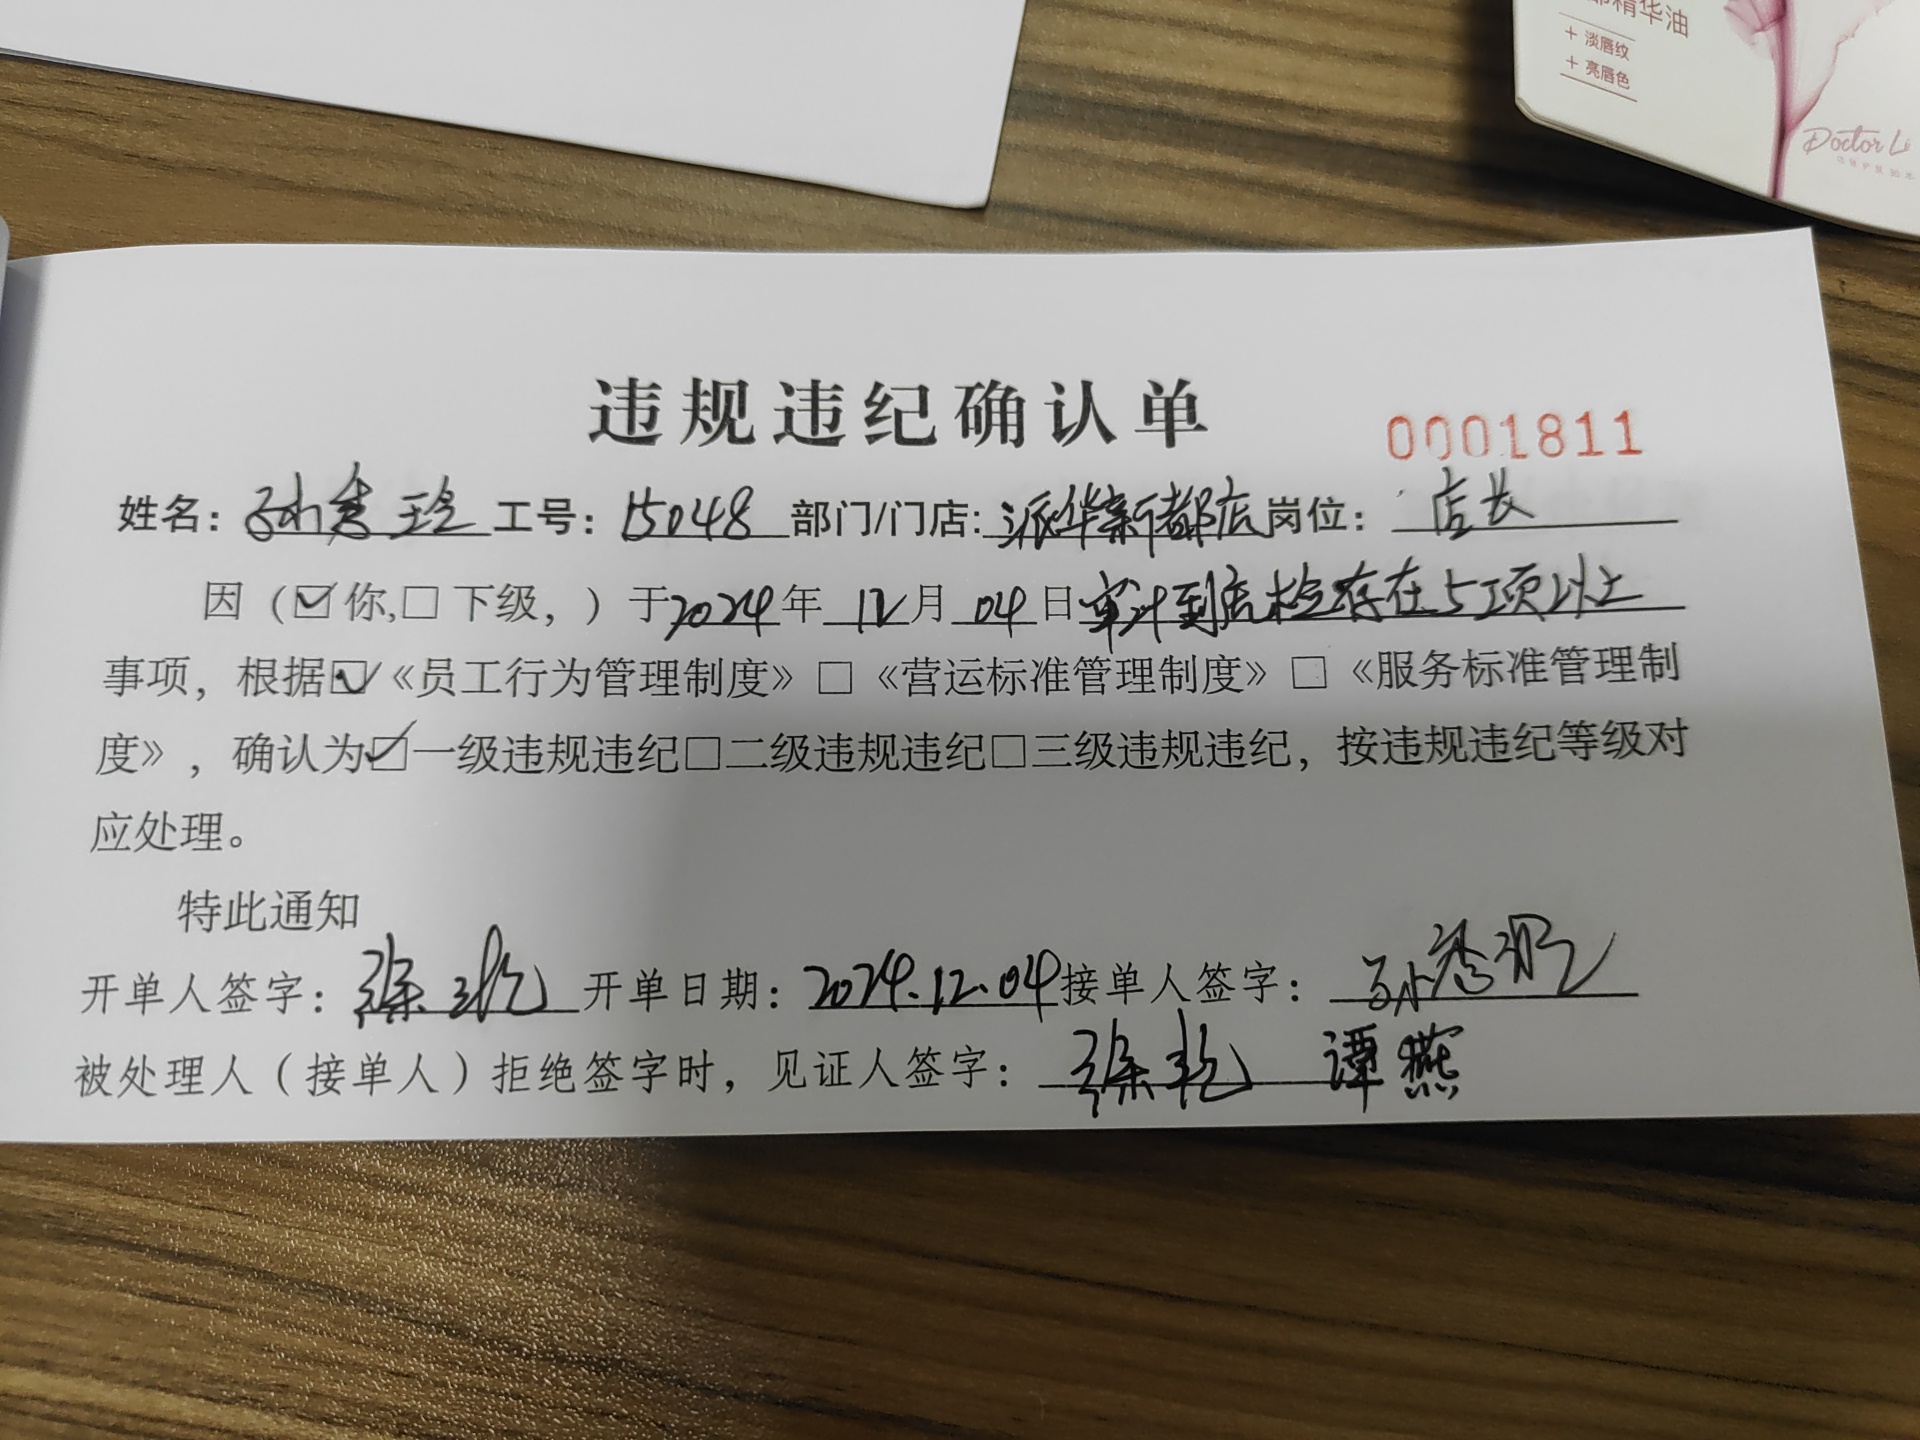 精华油
+ 淡唇纹
+ 亮唇色
Doctor Li
违规违纪确认单
0001811
姓名: 孙秀玲 工号: 15048 部门/门店: 派华新都店 岗位: 店长
因（☑你,□下级，）于2024年12月04日审计到店检存在5项以上
事项，根据☑《员工行为管理制度》□《营运标准管理制度》□《服务标准管理制
度》，确认为☑一级违规违纪□二级违规违纪□三级违规违纪，按违规违纪等级对
应处理。
特此通知
开单人签字: 徐 开单日期: 2024.12.04 接单人签字: 孙秀玲
被处理人（接单人）拒绝签字时，见证人签字: 徐 谭燕